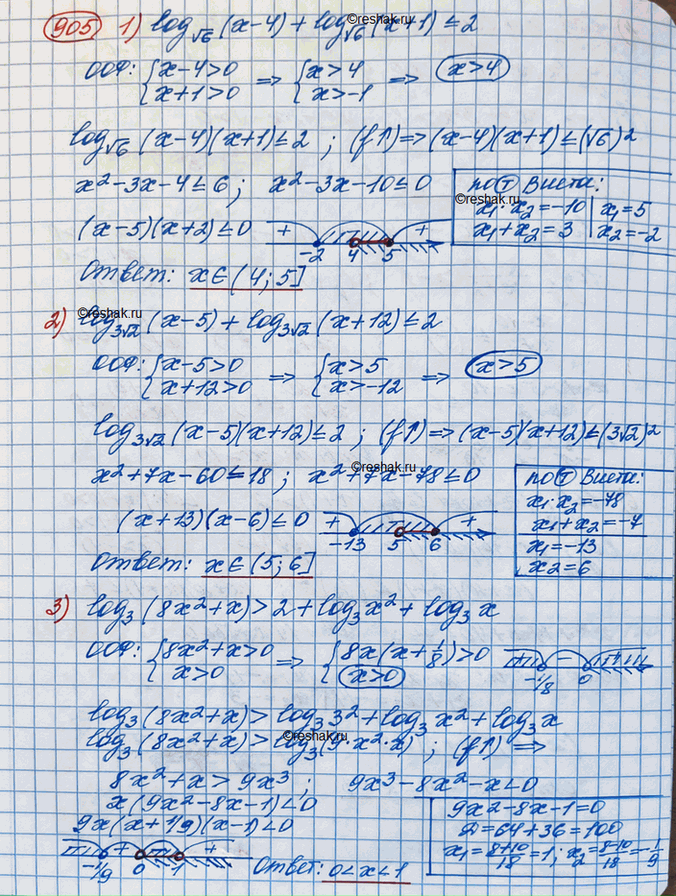 905 1) log√6 (x-4) + log√6 (x+1) ≤ 2
©reshak.ru
ООФ: {x-4>0 {x+1>0 ⇒ {x>4 {x>-1 ⇒ x>4
log√6 (x-4)(x+1) ≤ 2 ; (f↑) ⇒ (x-4)(x+1) ≤ (√6)²
x²-3x-4≤6; x²-3x-10≤0
по Т Виета:
©reshak.ru
x₁·x₂=-10 | x₁=5
x₁+x₂=3 | x₂=-2
(x-5)(x+2)≤0
+ +
-2 4 5
Ответ: x∈(4;5]
©reshak.ru
2) log3√2 (x-5) + log3√2 (x+12) ≤ 2
ООФ: {x-5>0 {x+12>0 ⇒ {x>5 {x>-12 ⇒ x>5
log3√2 (x-5)(x+12) ≤ 2 ; (f↑) ⇒ (x-5)(x+12) ≤ (3√2)²
©reshak.ru
x²+7x-60≤18 ; x²+7x-78≤0
по Т Виета:
x₁·x₂=-78
x₁+x₂=-7
x₁=-13
x₂=6
(x+13)(x-6)≤0
+ +
-13 5 6
Ответ: x∈(5;6]
3) log₃(8x²+x) > 2 + log₃x² + log₃x
ООФ: {8x²+x>0 {x>0 ⇒ {8x(x+1/8)>0 {x>0
+ - +
-1/8 0
log₃(8x²+x) > log₃3² + log₃x² + log₃x
©reshak.ru
log₃(8x²+x) > log₃(9·x²·x) ; (f↑) ⇒
8x²+x > 9x³ ; 9x³-8x²-x<0
x(9x²-8x-1)<0
9x(x+1/9)(x-1)<0
9x²-8x-1=0
D=64+36=100
x₁=8+10/18=1; x₂=8-10/18=-1/9
+ +
-1/9 0 1
Ответ: 0<x<1